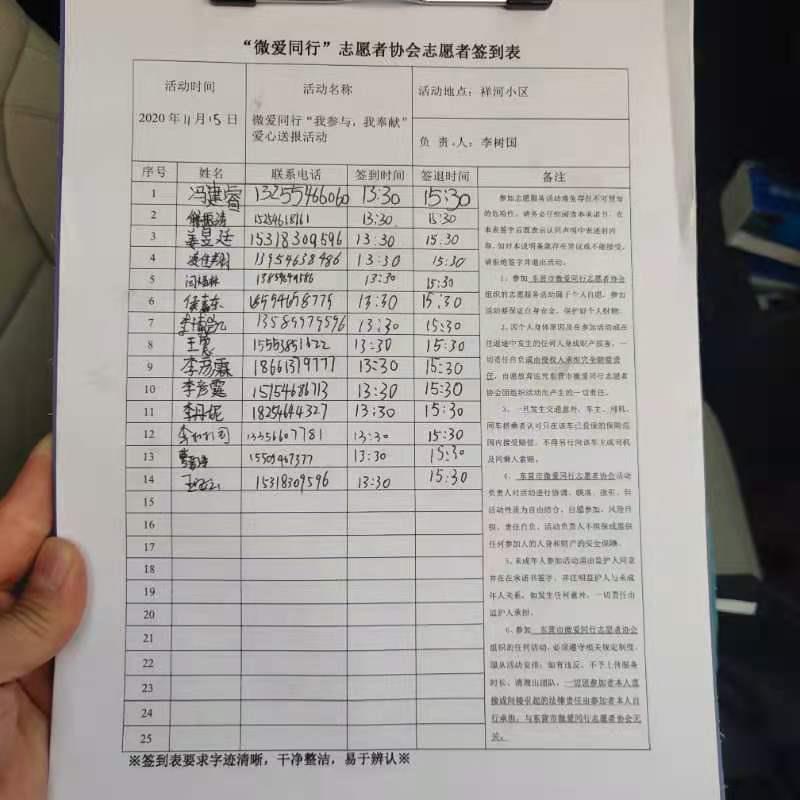 “微爱同行”志愿者协会志愿者签到表
活动时间
2020年11月15日
活动名称
微爱同行“我参与，我奉献”
爱心送报活动
活动地点：祥河小区
负责人：李树国
序号 姓名 联系电话 签到时间 签退时间 备注
1 冯建睿 13255466060 13:30 15:30
2 13:30 15:30
3 姜昱廷 15318309596 13:30 15:30
4 13954638986 13:30 15:30
5 13:30 15:30
6 13:30 15:30
7 13:30 15:30
8 13:30 15:30
9 李彦霖 18661379777 13:30 15:30
10 李彦霆 15754686713 13:30 15:30
11 李丹妮 18254644327 13:30 15:30
12 13356607781 13:30 15:30
13 13:30 15:30
14 15318309596 13:30 15:30
15
16
17
18
19
20
21
22
23
24
25
参加志愿服务活动难免存在不可预知
的危险性，请务必仔细阅读本承诺书，在
本表签字后既表示认同声明中表述的内
容，如对本说明条款存在异议或不能接受，
请拒绝签字并退出活动。
1、参加 东营市微爱同行志愿者协会
组织的志愿服务活动属于个人自愿，参加
活动要保证自身安全，保护好个人财物。
2、因个人身体原因及在参加活动或在
往返途中发生的任何人身或财产损害，一
切责任自负或由侵权人承担完全赔偿责
任，自愿放弃追究东营市微爱同行志愿者
协会因组织活动所产生的一切责任。
3、一旦发生交通意外，车主、司机、
同车搭乘者认可只在该车已投保的保险范
围内接受赔偿，不得另行向该车主或司机
及同乘人索赔。
4、东营市微爱同行志愿者协会活动
负责人对活动进行协调、联络、张罗，但
活动性质为自由结合、自愿参加、风险自
担、责任自负，活动负责人不担保或提供
任何参加人的人身和财产的安全保障。
5、未成年人参加活动需由监护人同意
并在在承诺书签字，并注明监护人与未成
年人关系。如发生任何意外，一切责任由
监护人承担。
6、参加 东营市微爱同行志愿者协会
组织的任何活动，必须遵守相关规定制度，
服从活动安排；如有违反，不予上传服务
时长，清理出团队，一切因参加者本人直
接或间接引起的法律责任由参加者本人自
行承担，与东营市微爱同行志愿者协会无
关。
※签到表要求字迹清晰，干净整洁，易于辨认※